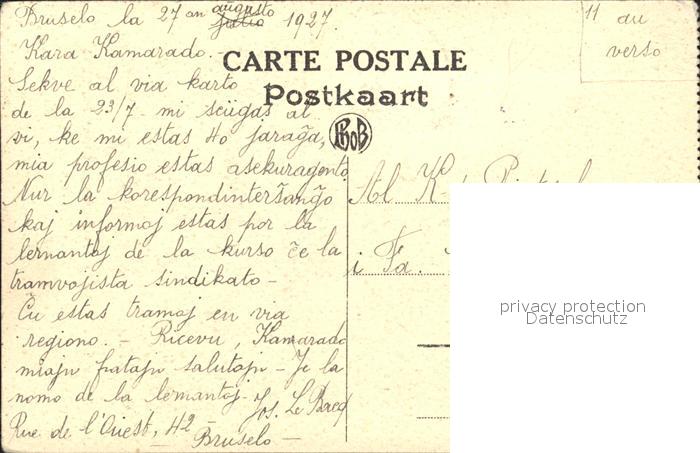 Bruselo la 27an aŭgusto
julio 1927.
11 au
verso
Kara Kamarado. -
CARTE POSTALE
Postkaart
Sekve al via karto
de la 23/7 mi sciigas al
vi, ke mi estas 40 jaraĝa,
mia profesio estas asekuragento
Nur la korespondinterŝanĝo
kaj informoj estas por la
lernantoj de la kurso ĉe la
tramvojista sindikato -
Ĉu estas tramoj en via
regiono. - Ricevu, Kamarado
miajn fratajn salutojn - Je la
nomo de la lernantoj.
Jos. Le Bacq
Rue de l'Ouest, 42 -
Bruselo -
Al
i Fa.
privacy protection
Datenschutz